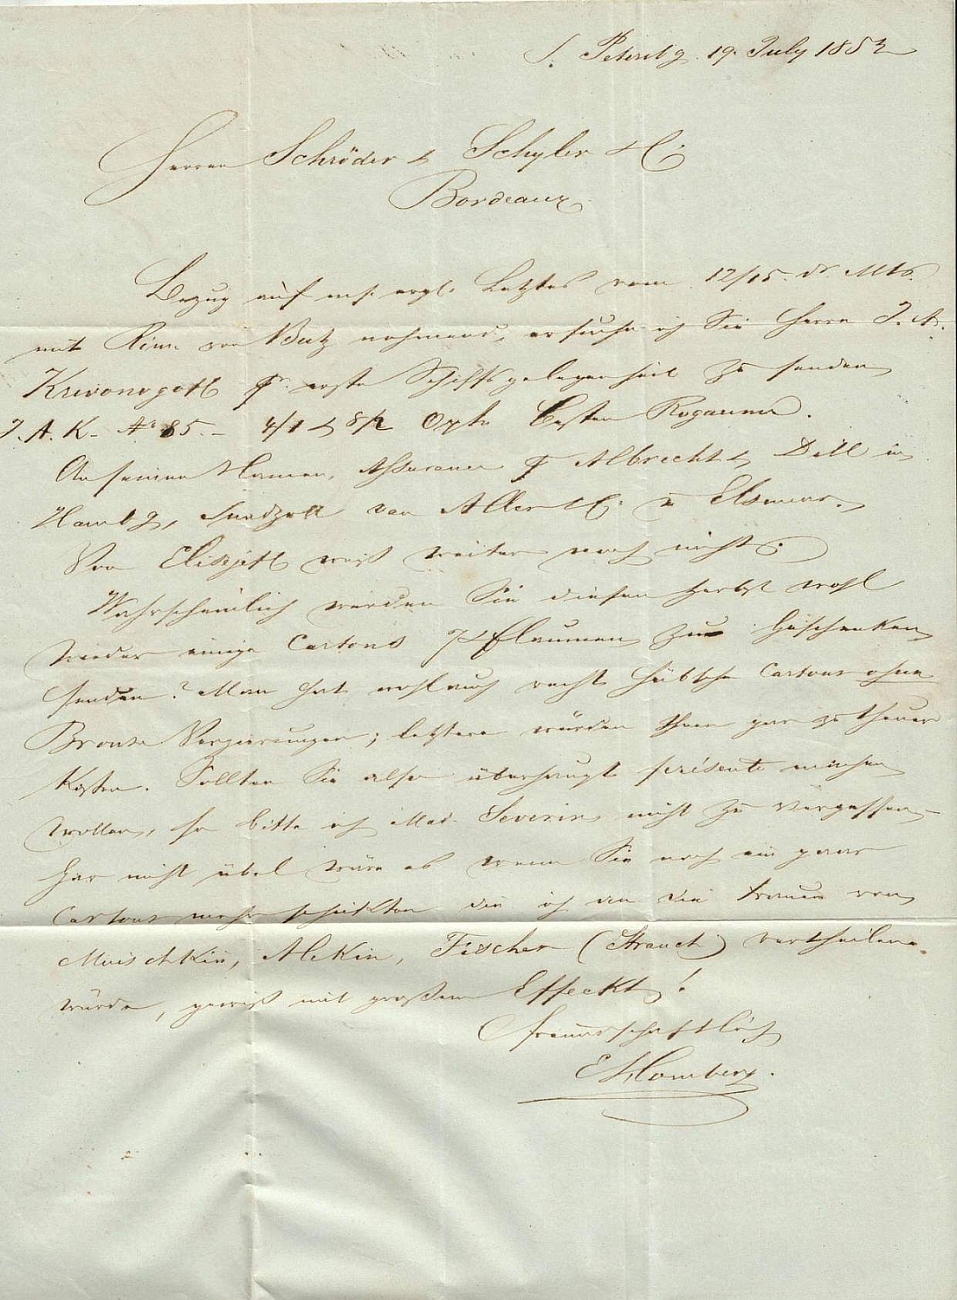 S. Petersbg. 19. July 1852
Herren Schröder & Schyler & C°
Bordeaux
Bezug auf ms. ergb. Letztes vom 12/15. ds. Mts.
mit nehmend, ersuche ich Sie Herrn J. A.
Krivonogoff pr. erste Schiffsgelegenheit zu senden
J. A. K. N° 85. – 4/1 & 8/2 Oxh. besten Rogaume.
An seinen Namen, Assecuranz pr. Albrecht & Dill in
Hambg, Sundzoll von & C° in Elseneur.
Von weiter noch nichts.
Wahrscheinlich werden Sie diesen Herbst wohl
wieder einige Cartons Pflaumen zu Geschenken
senden? Man hat wohl auch recht hübsche Cartons ohne
Bronze Verzierungen; letztere würden Ihnen gar zu theuer
kosten. Sollten Sie also überhaupt présente machen
wollen, so bitte ich Mad. Severin nicht zu vergessen –
Gar nicht übel wäre es wenn Sie noch ein paar
Cartons mehr schickten die ich an die Frauen von
Muischkin, Alekin, Fischer (Strauch) vertheilen
würde, gewiß mit großem Effeckt!
freundschaftlich